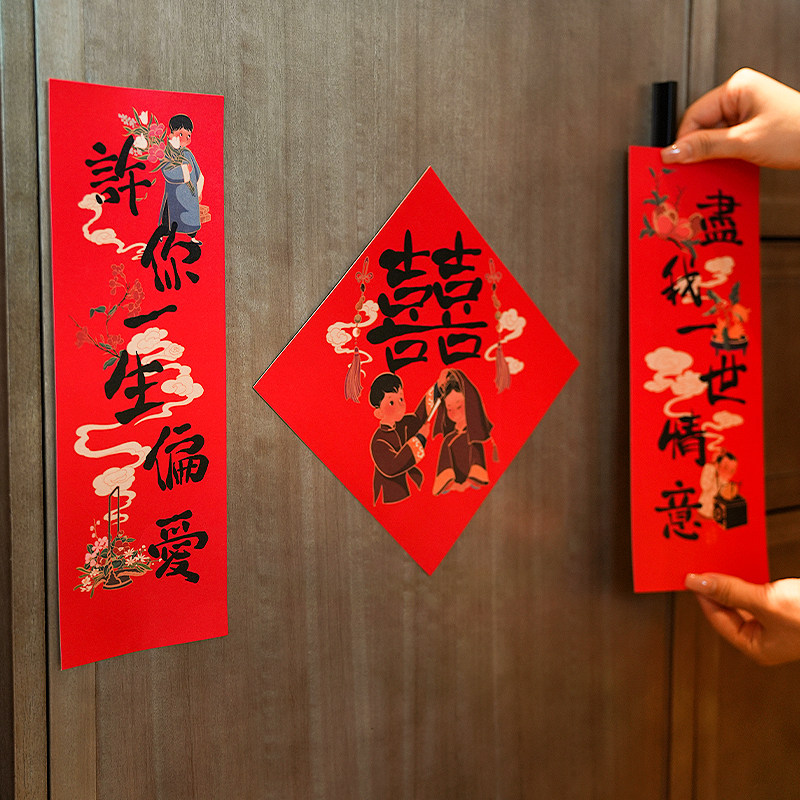 許你一生偏愛
囍
盡我一世情意